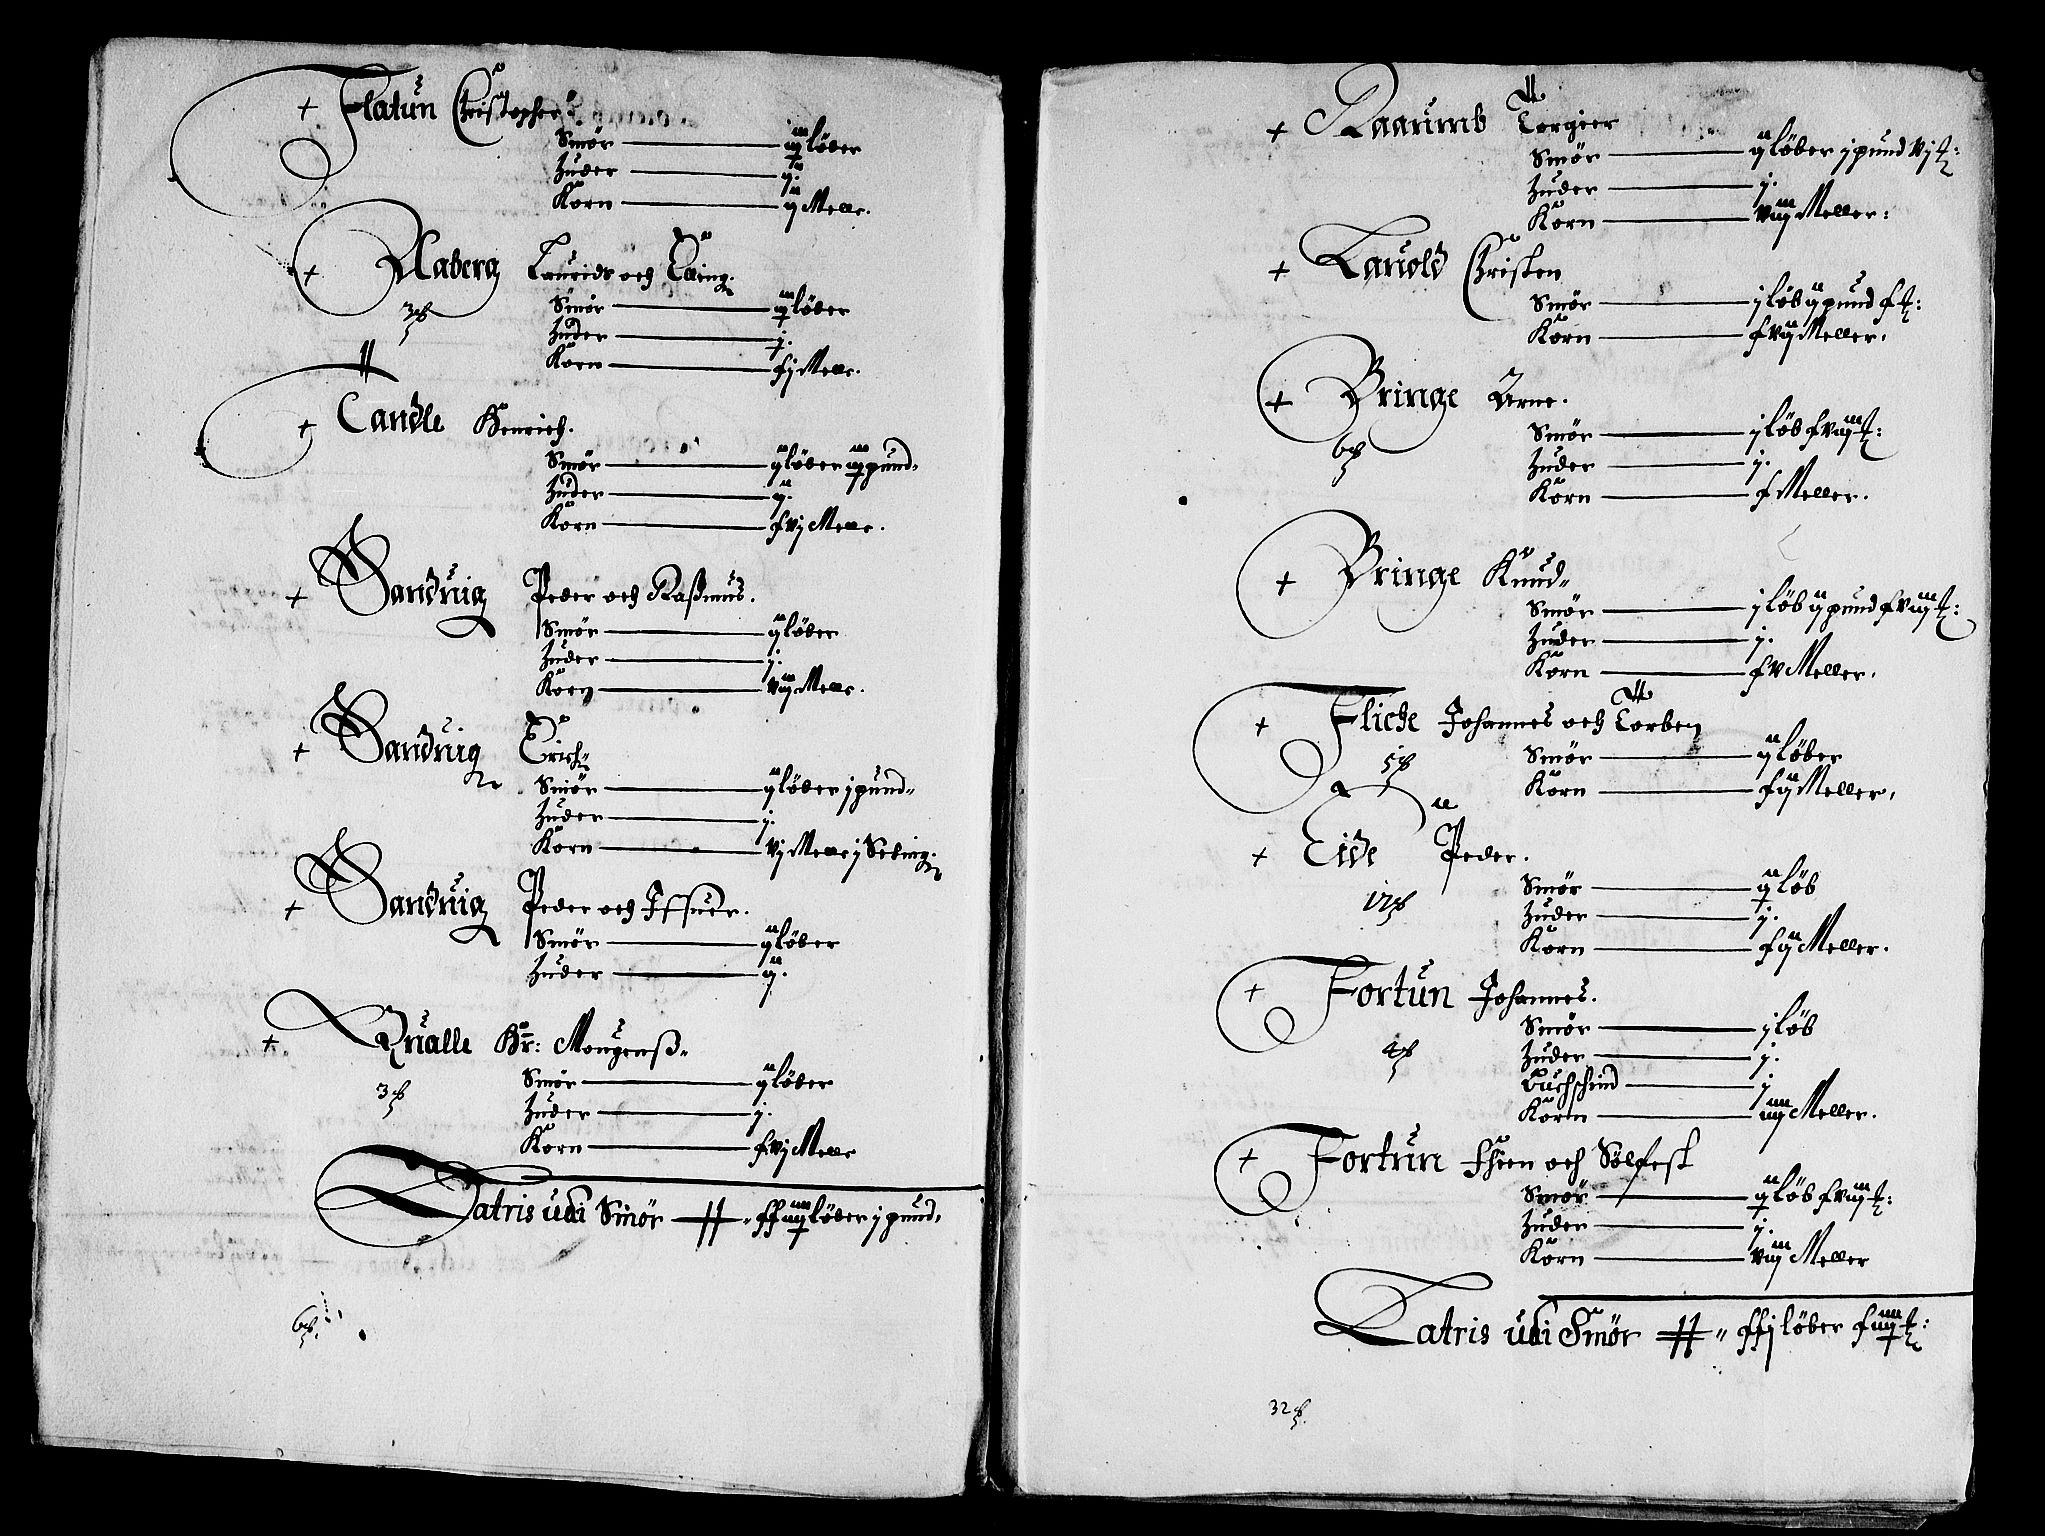 + Flatun Christopher
Smör — iij löber
Huder — ij.
Korn — ij Mell.
+ Naberg Laurids och Elling.
3 ß
Smör — iij löber
Huder — j.
Korn — xj Mell.
+ Tandle Henrich.
Smör — ij löber iij pund.
Huder — ij.
Korn — xvj Mell.
+ Sanduig Peder och Rasmus.
Smör — ij löber
Huder — j.
Korn — vij Mell.
+ Sanduig Erich
Smör — ij löber j pund
Huder — j.
Korn — vj Mell j Seting.
+ Sanduig Peder och Iffuer.
Smör — ij löber
Huder — ij.
+ Qualle Hr: Mongenß
3 ß
Smör — ij löber
Huder — j.
Korn — xvj Mell
Latris udi Smör — xxiiij löber j pund.
6 ß.
+ Raaumb Torgier
Smör — ij löber j pund vj ₥:
Huder — j.
Korn — viij Meller:
+ Lauold Christen
Smör — j löb ij pund x ₥:
Korn — xvij Meller.
+ Bringe Arne.
6 ß
Smör — j löb xviij ₥:
Huder — j.
Korn — x Meller.
+ Bringe Knud
Smör — j löb ij pund xviij ₥:
Huder — j.
Korn — xv Meller.
+ Fliche Johannes och Torben
5 ß
Smör — ij löber
Korn — xij Meller.
+ Eide Peder.
17 ß
Smör — ij löb
Huder — j.
Korn — xij Meller.
+ Fortun Johannes.
4 ß
Smör — j löb
Huder — j.
Buchschind — j
Korn — iiij Meller.
+ Fortun Sölfest
Smör — ij löb xviij ₥:
Huder — j.
Korn — viij Meller
Latris udi Smör — xxj löber xiiij ₥:
32 ß.